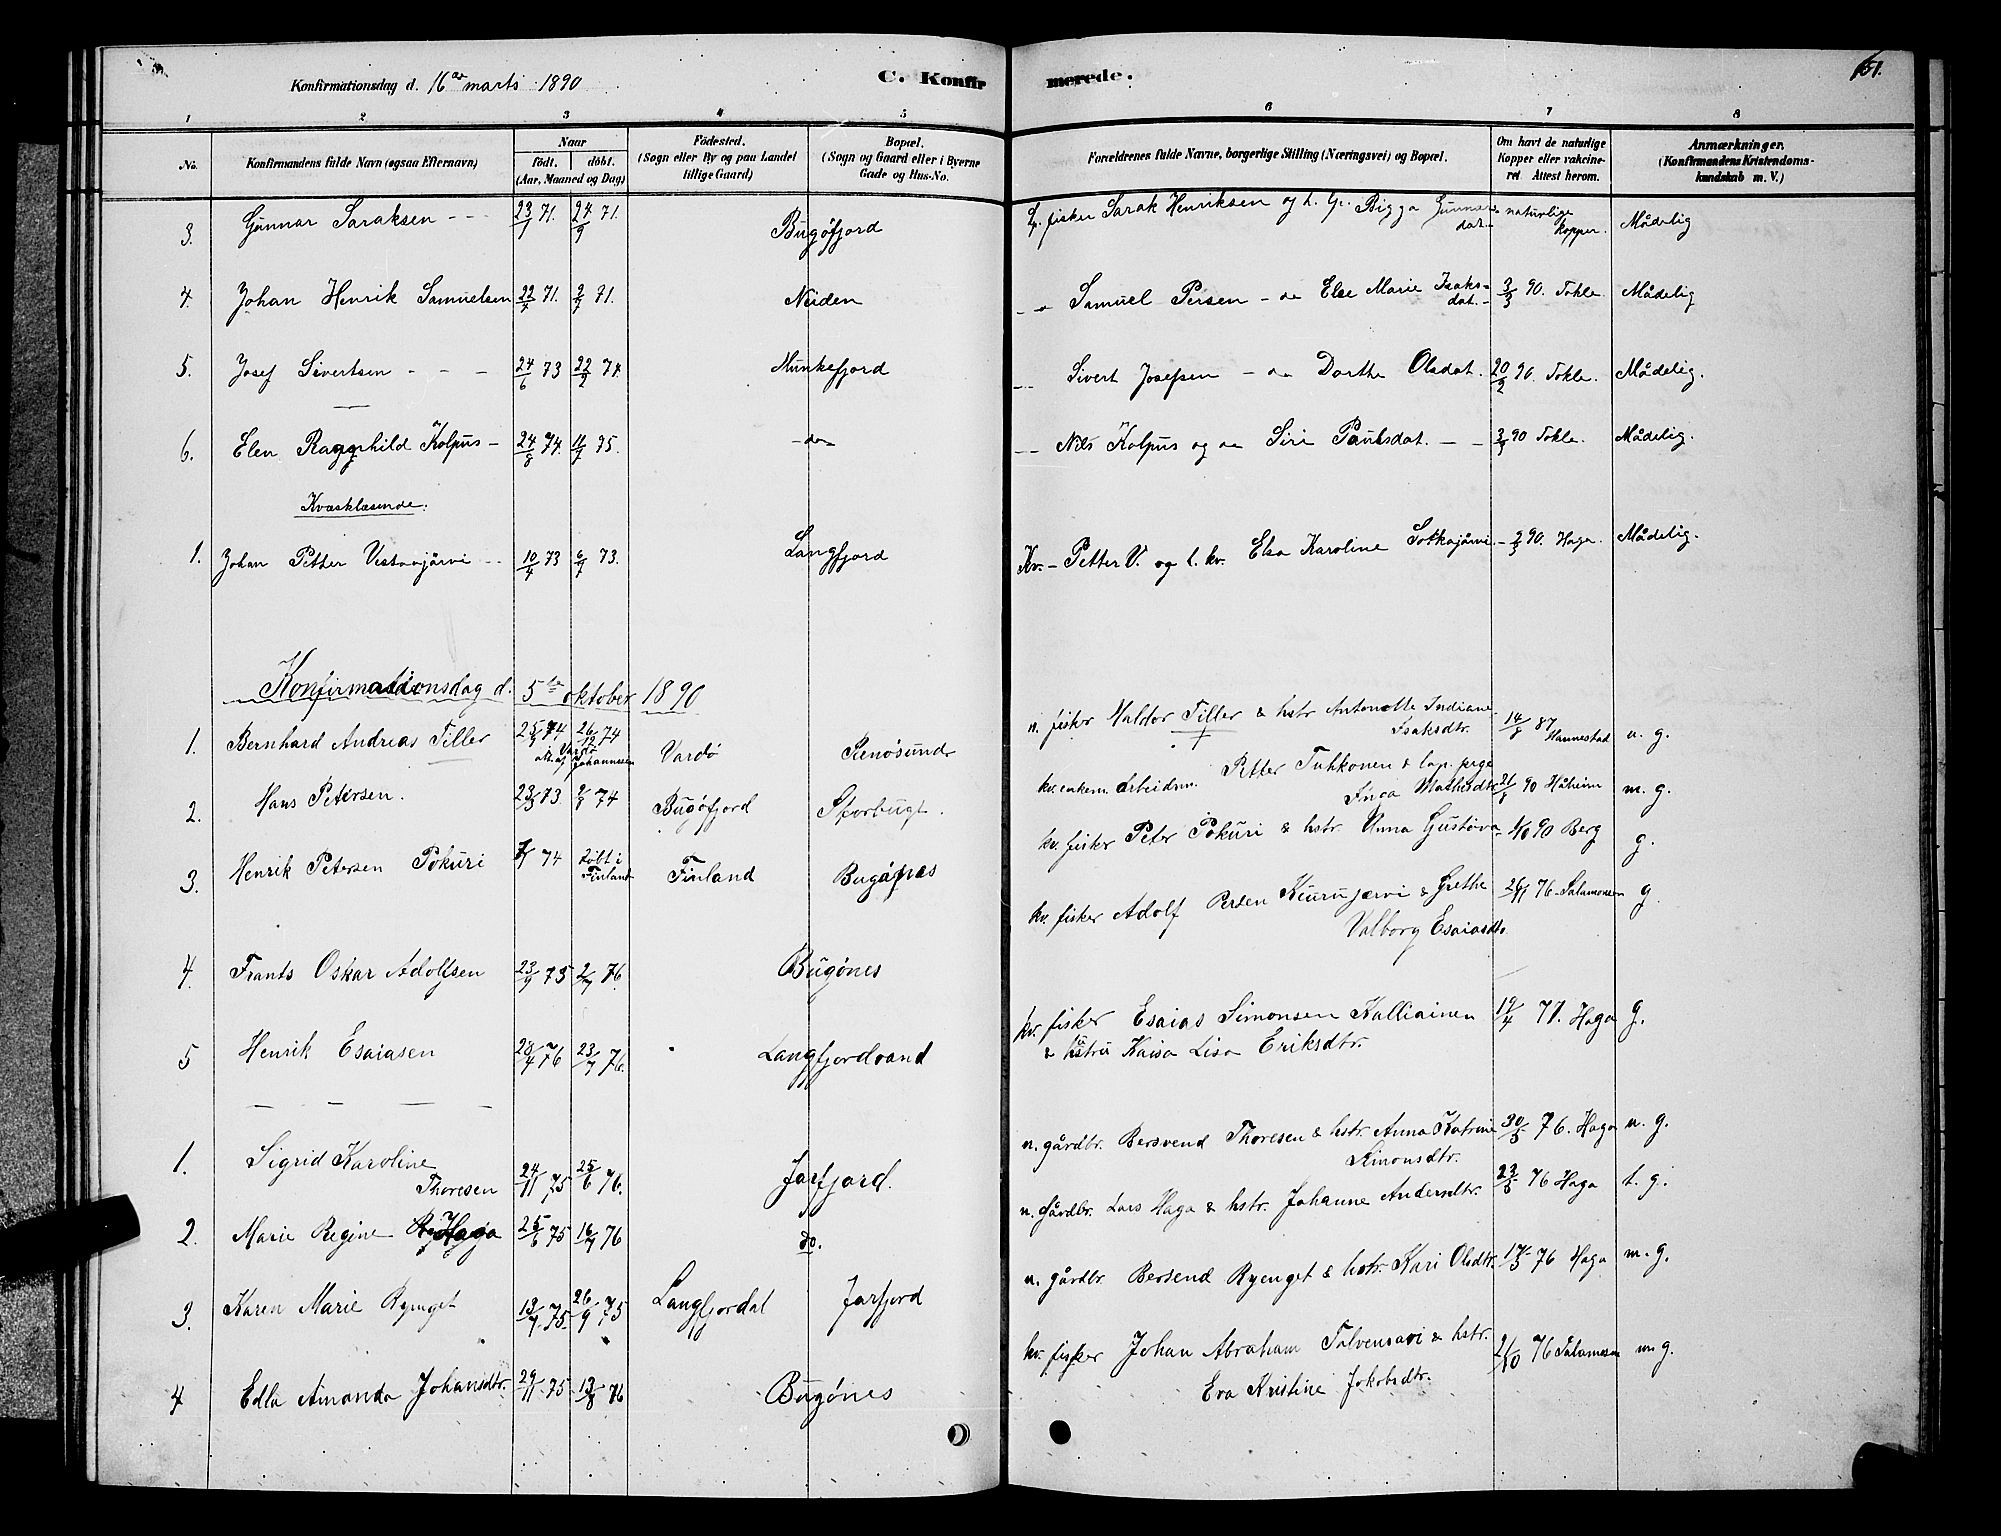 Konfirmationsdag d. 16de marts 1890
C. Konfirmerede.
151.
1 2 3 4 5 6 7 8
No.
Konfirmandens fulde Navn (ogsaa Efternavn)
Naar
födt. döbt.
(Aar, Maaned og Dag)
Födested.
(Sogn eller By og paa Landet
tillige Gaard)
Bopæl.
(Sogn og Gaard eller i Byerne
Gade og Hus-No.
Forældrenes fulde Navne, borgerlige Stilling (Næringsvei) og Bopæl.
Om havt de naturlige
Kopper eller vakcineret
Attest herom.
Anmærkninger.
(Konfirmandens Kristendomskundskab
m. V.)
3. Gunnar Saraksen 23/7 71. 24/9 71. Bugøfjord L. fisker Sarak Henriksen og Bigga Gunnarsdat. naturlige kopper. Mådelig
4. Johan Henrik Samuelsen 71. 71. Neiden Samuel Persen - do Else Marie Isaksdat. 3/3 90. Tokle. Mådelig
5. Josef Sivertsen 24/6 73 Munkefjord Sivert Josefsen - do Dorthe Olsdat. 90. Tokle. Mådelig.
6. Elen Ragnhild Kolpus 24/8 74. 75. - do - Nils Kolpus og do Siri Paulsdat. 90 Tokle. Mådelig.
Kvæsklæsende.
1. Johan Petter Vestarjärvi 10/4 73 73. Langfjord Kv. - Petter V. og l. kv. Elsa Karoline 90. Haga. Mådelig.
Konfirmationsdag d. 5te oktober 1890
1. Bernhard Andreas Tiller 74 26/12 74 Vardø Renøsund n. fisker Haldor Tiller & hstr Antonette Indiane Isaksdtr. 14/8 87 Hannestad n. g.
2. Hans Petersen. 23/3 73. 74 Bugøfjord Storbugt. kv. enkem. arbeidsm. Petter Tuhkonen & lap. pige Inga Mathisdtr. 90 Håheim m. g.
3. Henrik Petersen Pokuri 74 døbt i Finland Finland Bugøfnes kv. fisker Peter Pokuri & hstr. Anna Gustava 90 Berg g.
4. Frants Oskar Adolfsen 23/9 75 76. Bugønes kv. fisker Adolf Persen Kiurujærvi & Grethe Valborg Esaiasdtr. 76 Salamonsen g.
5 Henrik Esaiasen 76 23/7 76. Langfjordvand kv. fisker Esaias Simonsen Kalliainen & hstru Kaisa Lisa Eriksdtr. 19/4 77. Haga g.
1. Sigrid Karoline Thoresen 24/11 75 25/6 76. Jarfjord. n. gårdbr. Bersvend Thoresen & hstr. Anna Katrine Simonsdtr. 30/5 76. Haga n. g.
2. Marie Regine Haga 75 16/7 76 do. n. Gårdbr. Lars Haga & hstr. Johanne Andersdtr. 76 Haga t. g.
3. Karen Marie Ryenget 75. 26/9 75 Langfjordal Jarfjord n. gårdbr. Bersend Ryenget & hstr. Kari Olsdtr. 76 Haga m. g.
4 Edla Amanda Johansdtr. 29/11 75 13/8 76 Bugønes kv. fisker Johan Abraham Talvensari & hstr. Eva Kristine Jakobsdtr. 76 Salamonsen m g.